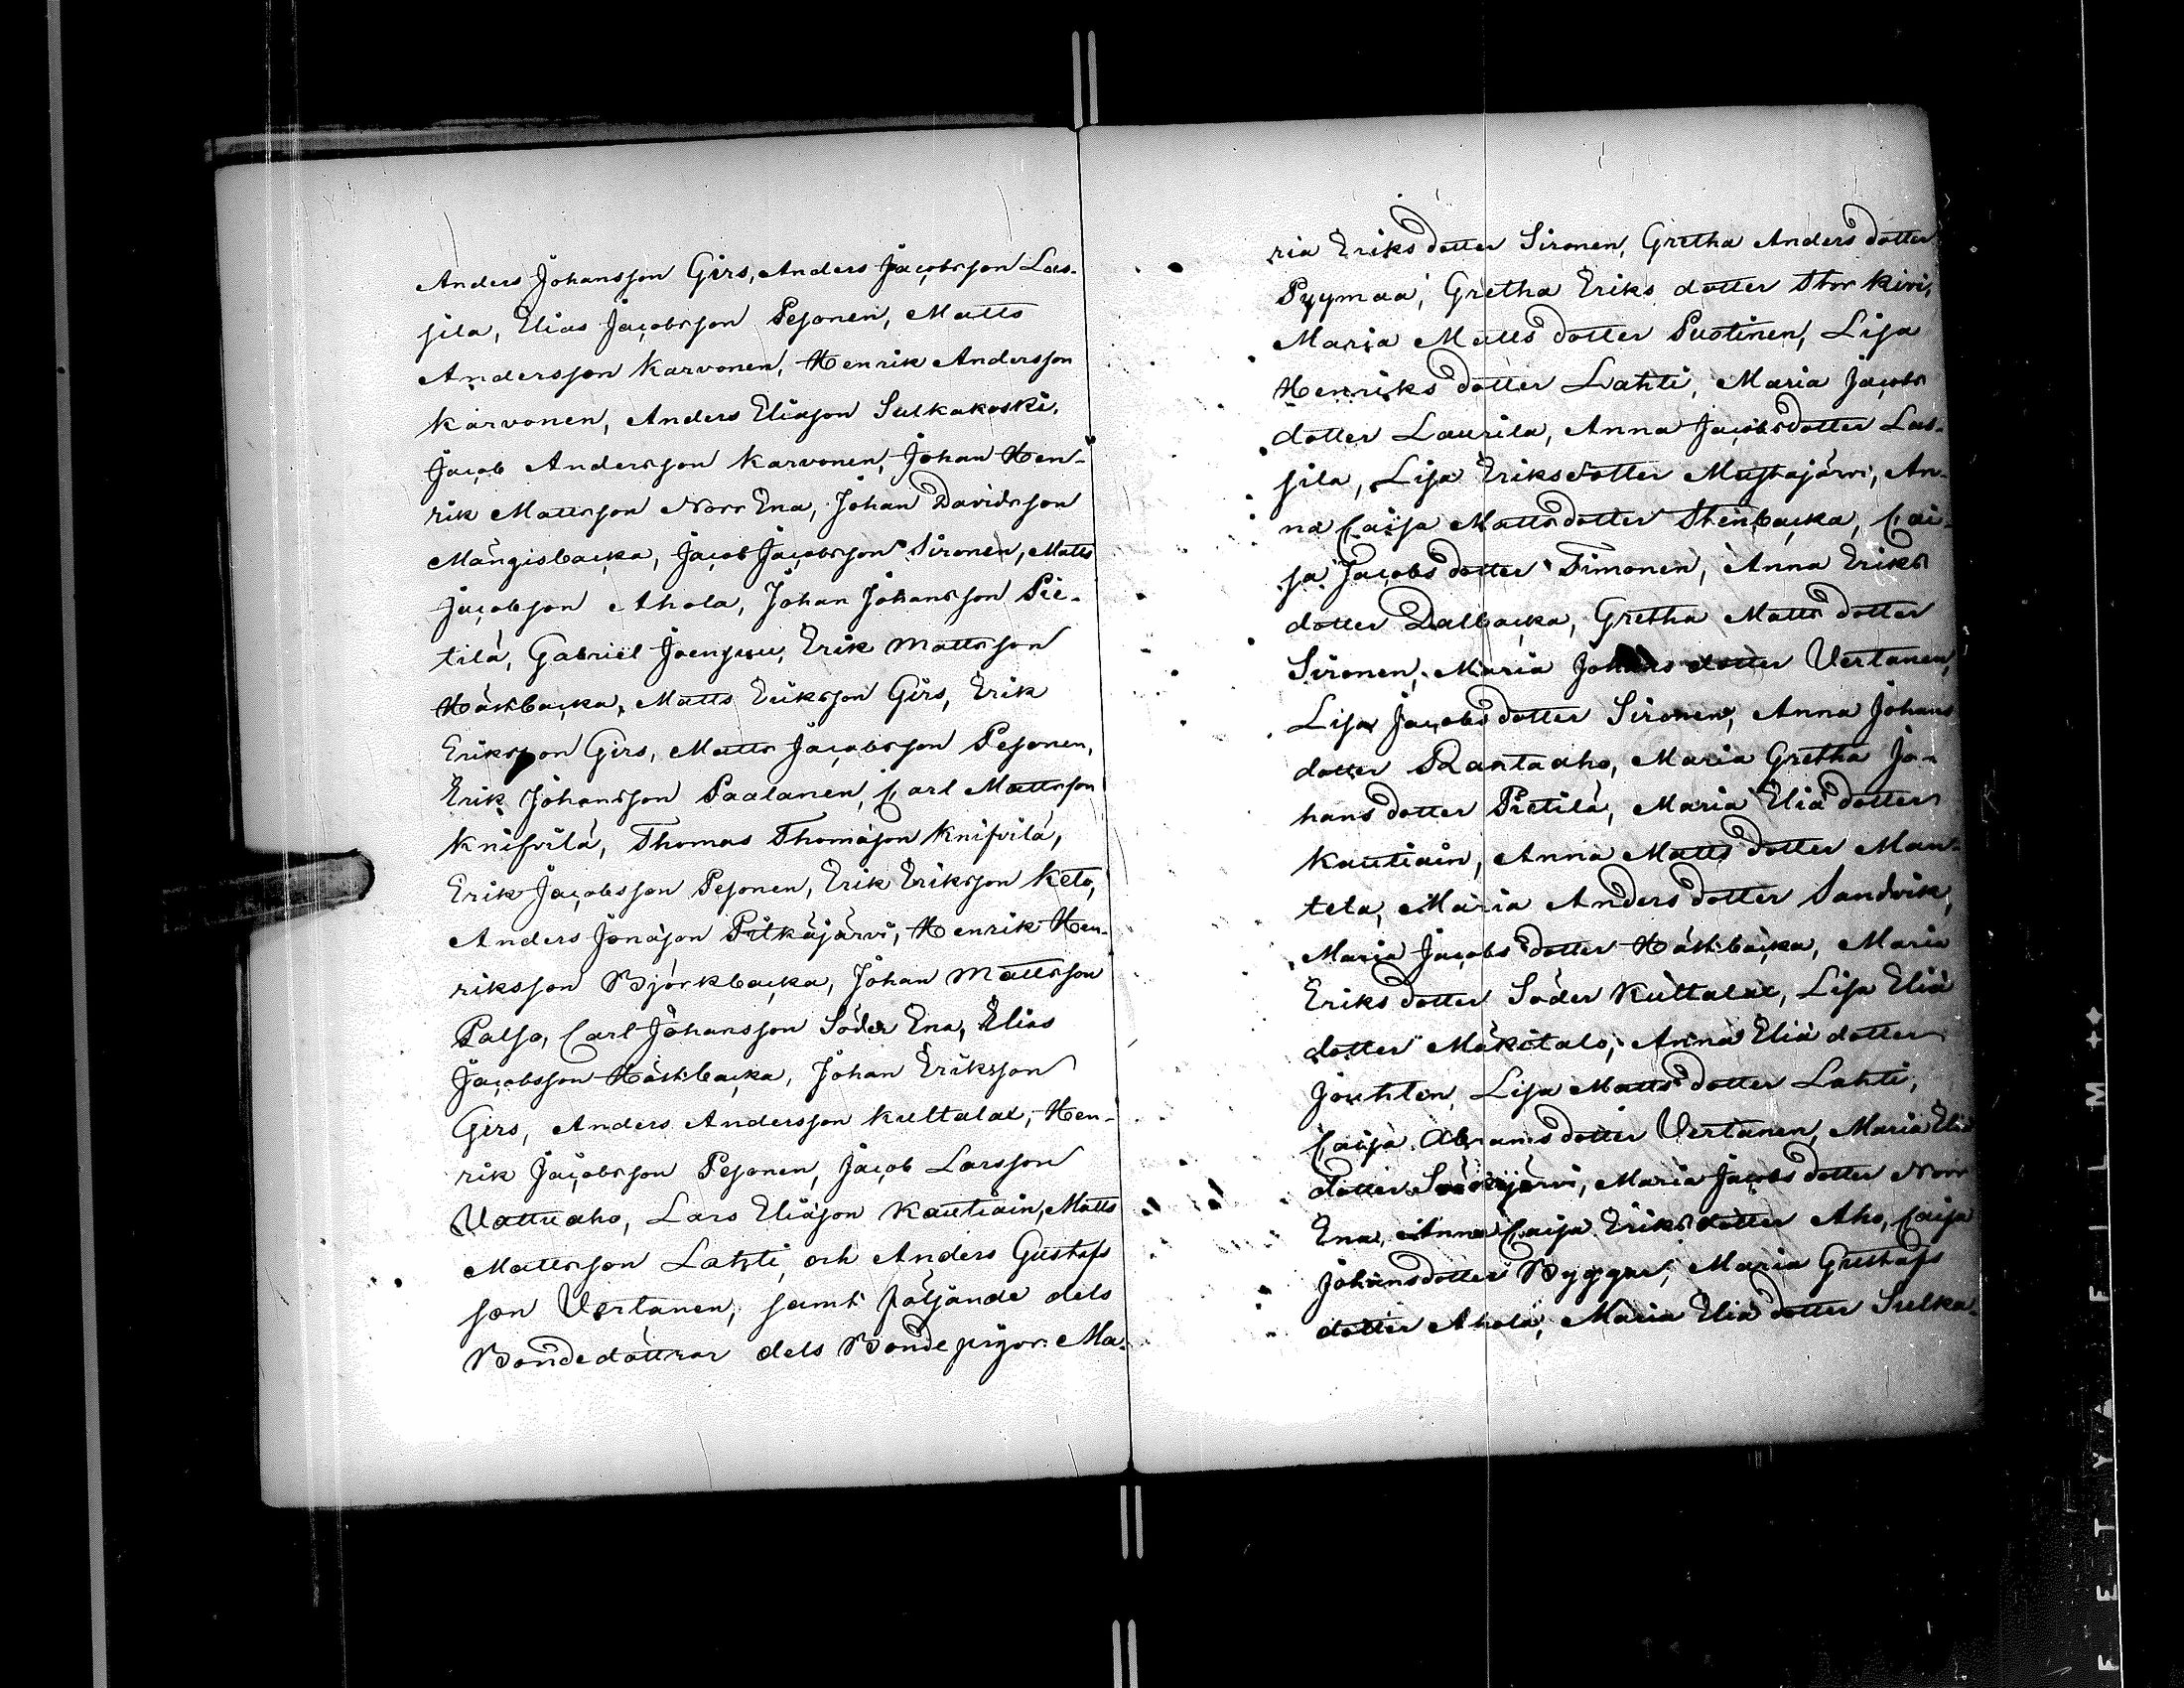 Anders Johansson Girs, Anders Jacobsson Las-
sila, Elias Jacobsson Pesonen, Matts
Andersson Karvonen, Henrik Andersson
Karvonen, Anders Eliason Sulkakoski,
Jacob Andersson Karvonen, Johan Hen-
rik Mattsson Norr Ena, Johan Davidsson
Mångisbacka, Jacob Jacobsson Sironen, Matts
Jacobson Ahola, Johan Johansson Pie-
tilä, Gabriel Joensuu, Erik Mattsson
Hästbacka, Matts Eriksson Girs, Erik
Eriksson Girs, Matts Jacobsson Pesonen,
Erik Johansson Paalanen, Carl Mattsson
Knifvilä, Thomas Thomason Knifvilä,
Erik Jacobsson Pesonen, Erik Eriksson Keto,
Anders Jonason Pitkäjärvi, Henrik Hen-
riksson Björkbacka, Johan Mattsson
Palso, Carl Johansson Söder Ena, Elias
Jacobsson Hästbacka, Johan Eriksson
Girs, Anders Andersson Kulttalax, Hen-
rik Jacobsson Pesonen, Jacob Larsson
Vattuaho, Lars Eliason Kautiain, Matts
Mattsson Lahti, och Anders Gustafs
son Vertanen, samt följande dels
Bondedöttrar dels Bondepigor: Ma-
ria Eriks dotter Sironen, Gretha Anders dotter
Pyymaa, Gretha Eriks dotter Stor Kivi,
Maria Matts dotter Puotinen, Lisa
Henriks dotter Lahti, Maria Jacobs
dotter Laurila, Anna Jacobsdotter Las-
sila, Lisa Eriksdotter Mustajärvi, An-
na Caisa Mattsdotter Stenbacka, Cai-
sa Jacobs dotter Timonen, Anna Eriks
dotter Dalbacka, Gretha Matts dotter
Sironen, Maria Johans dotter Vertanen,
Lisa Jacobs dotter Sironen, Anna Johans
dotter Rantaaho, Maria Gretha Jo-
hans dotter Pietilä, Maria Eliä dotter
Kautiain, Anna Matts dotter Man-
tela, Maria Anders dotter Sandvik,
Maria Jacobs dotter Hästbacka, Maria
Eriks dotter Söder Kulttalax, Lisa Eliä
dotter Mäkitalo, Anna Eliä dotter
Jouhten, Lisa Matts dotter Lahti,
Caisa Abrams dotter Vertanen, Maria Eliä
dotter Sääksjärvi, Maria Jacobs dotter Norr
Ena, Anna Caisa Eriks dotter Aho, Caisa
Johansdotter Byggar, Maria Gustafs
dotter Ahola, Maria Eliä dotter Sulka-
FETYÄ FILM